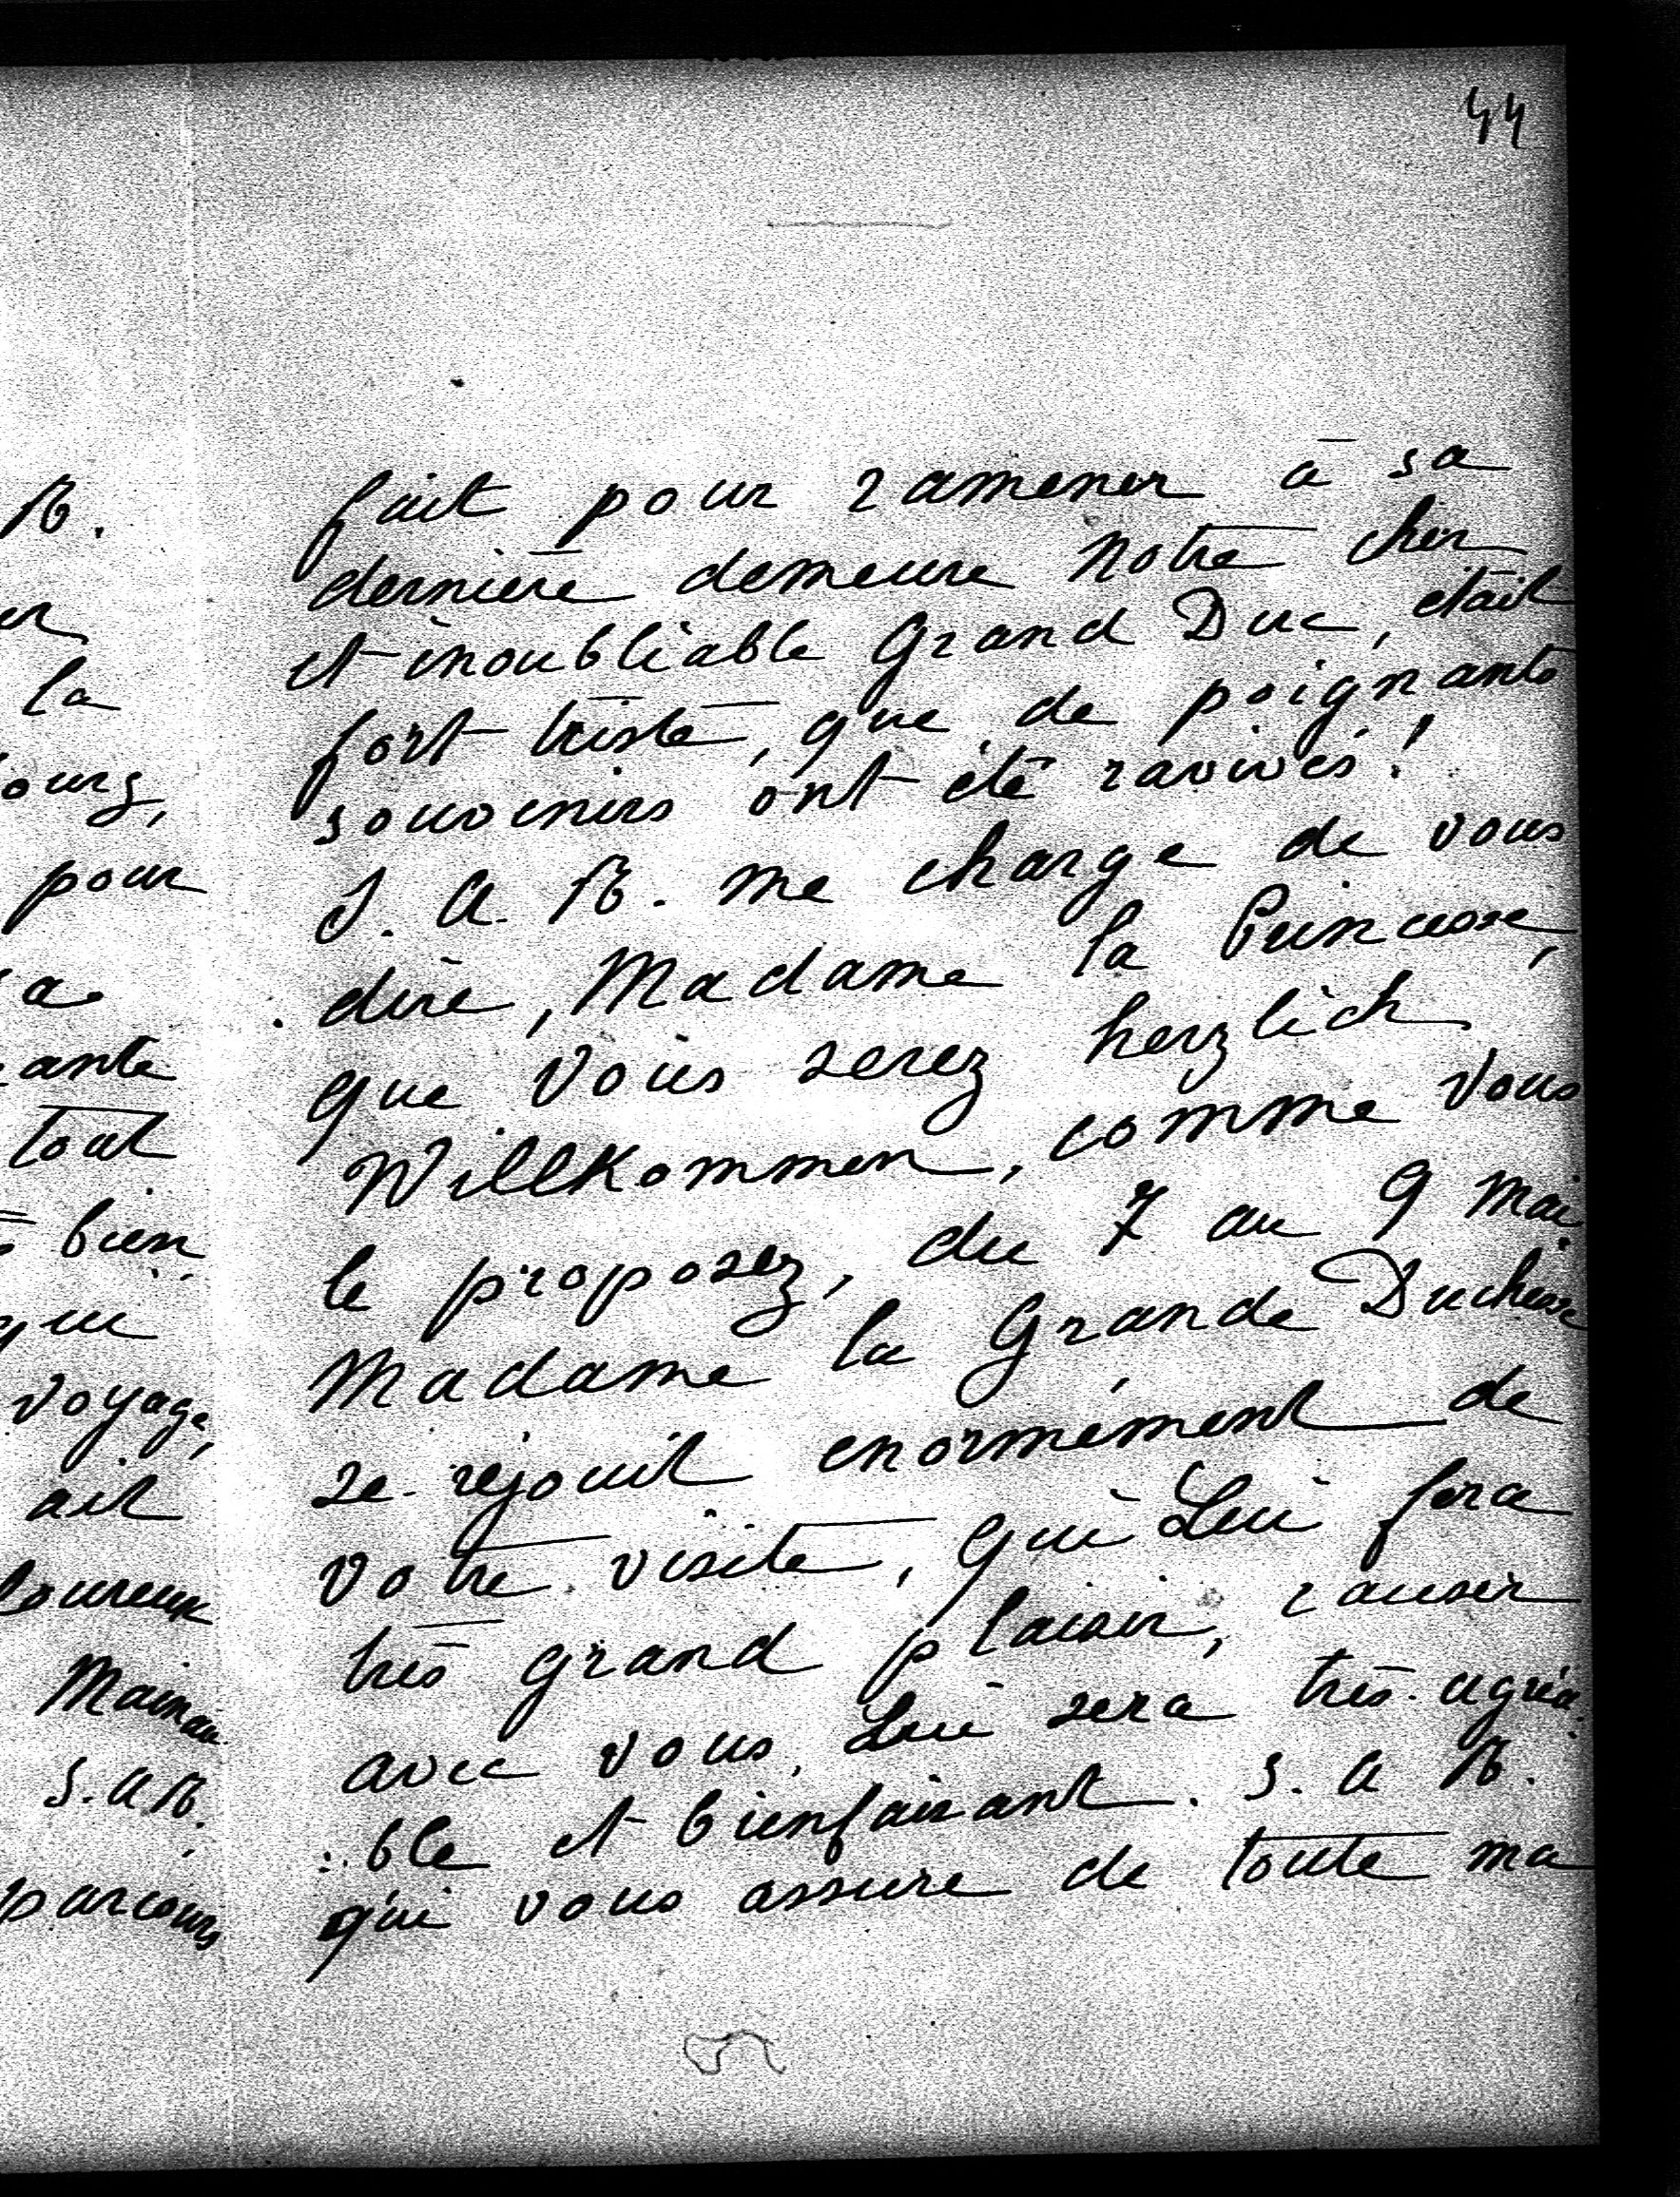 44
R.
er
la
bourg,
pour
sa
ante
tout
bien
que
voyage,
ait
loureux
Mainau
S. A. R.
parcours
fait pour ramener à sa
dernière demeure notre cher
et inoubliable Grand Duc, était
fort triste, que de poignants
souvenirs ont été ravivés!
S. A. R. me charge de vous
dire, Madame la Princesse,
que vous serez herzlich
Willkommen, comme vous
le proposez, du 7 au 9 mai
Madame la Grande Duchesse
se rejouit enormément de
votre visite, qui Lui fera
très grand plaisir, causer
avec vous, Lui sera très agréa
:ble et bienfaisant. S. A R.
qui vous assure de toute ma